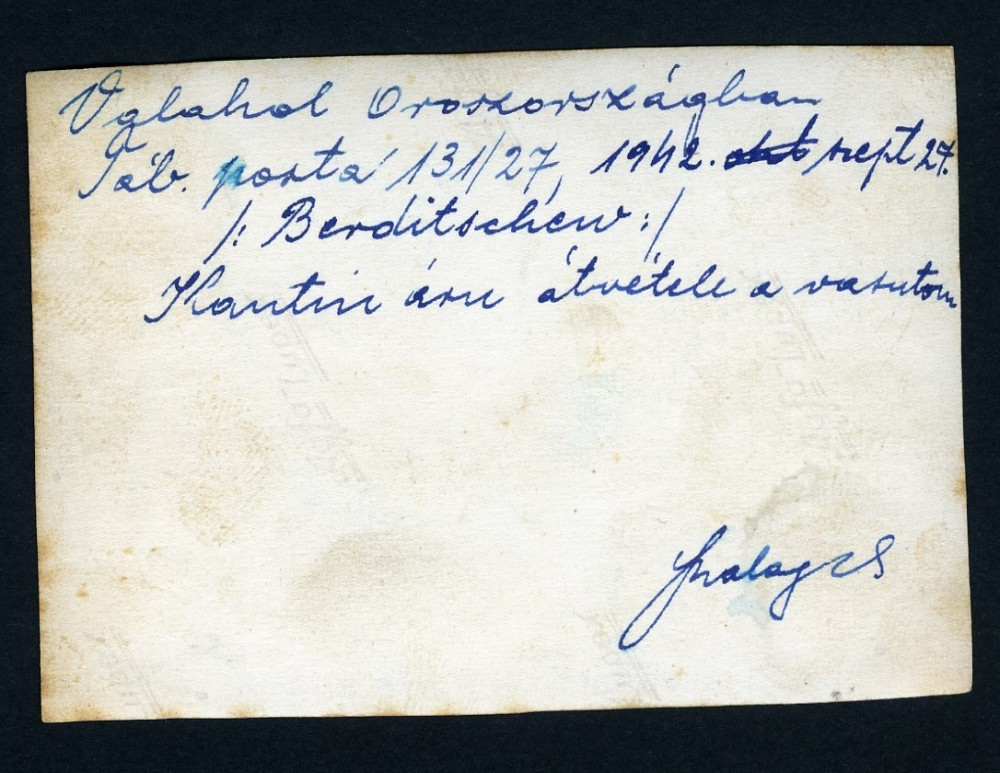 Valahol Oroszországban
Táb. posta 131/27, 1942. okt szept 27.
/: Berditschew :/
Kantin áru átvétele a vasuton